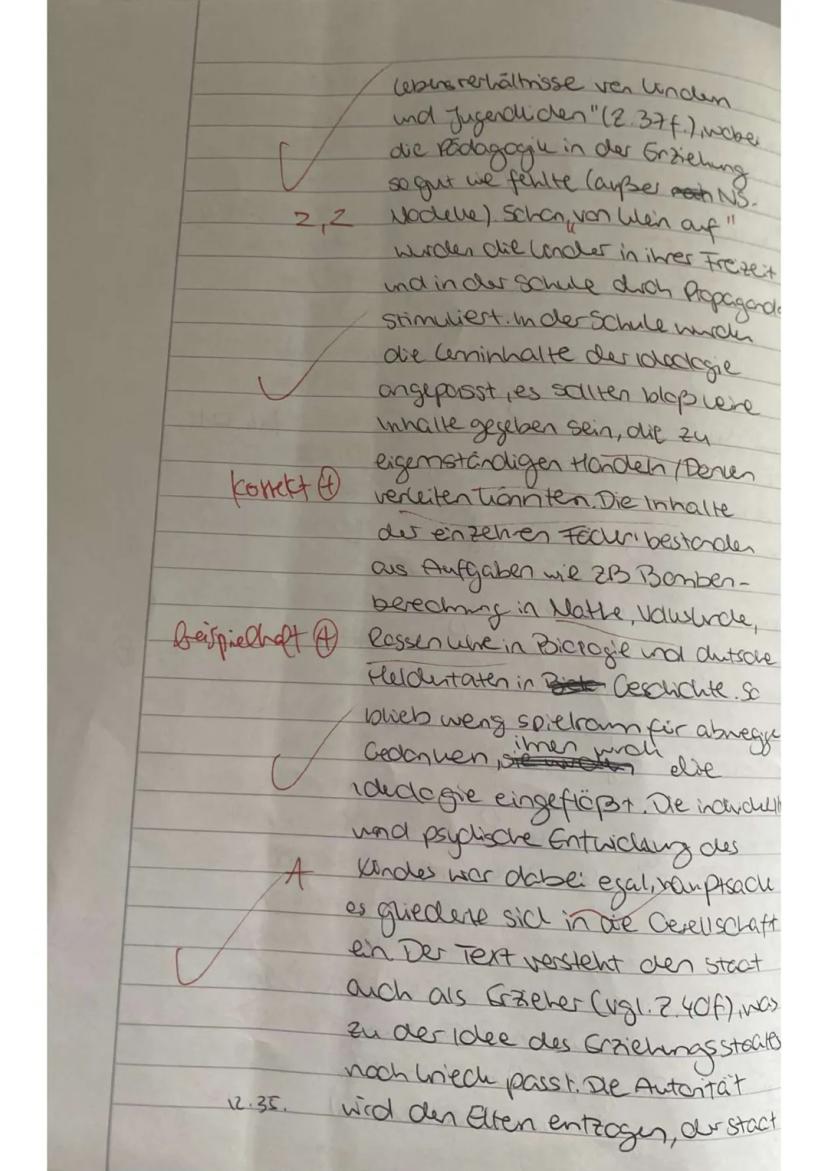 Lebensverhältnisse von Kindern
und Jugendlichen" (Z.37f.), wobei
die Pädagogik in der Erziehung
so gut wie fehlte (außer NS-
Z, Z Modelle). Schon „von klein auf"
wurden die Kinder in ihrer Freizeit
und in der Schule durch Propaganda
stimuliert. In der Schule wurden
die Lerninhalte der Ideologie
angepasst, es sollten bloß keine
Inhalte gegeben sein, die zu
eigenständigen Handeln / Denken
korrekt + verleiten könnten. Die Inhalte
der einzelnen Fächer bestanden
aus Aufgaben wie zB Bomben-
berechnung in Mathe, Volkskunde,
beispielhaft + Rassen in Biologie und deutsche
Heldentaten in Geschichte. So
blieb wenig spielraum für abwegige
Gedanken, ihnen wurde die
Ideologie eingeflößt. Die individuelle
und psychische Entwicklung des
A Kindes war dabei egal, hauptsache
es gliederte sich in die Gesellschaft
ein. Der Text versteht den Staat
auch als Erzieher (vgl. Z.40f), was
zu der Idee des Erziehungsstaates
nach Krieck passt. Die Autorität
12.35. wird den Eltern entzogen, der Staat